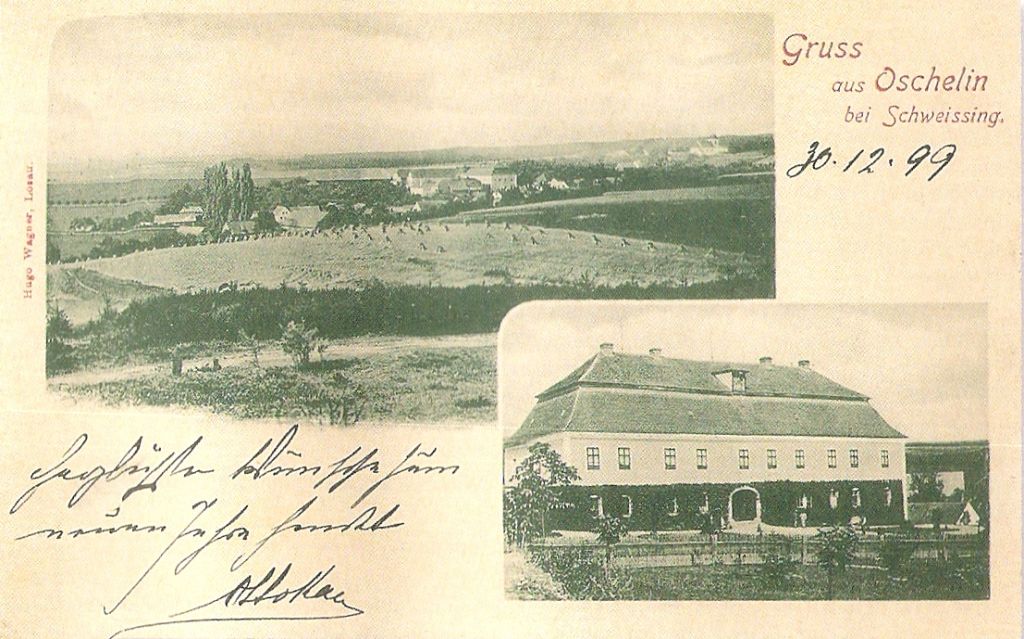 Gruss
aus Oschelin
bei Schweissing.
30. 12. 99
Hugo Wagner, Losau.
Wünsche zum
neuen Jahre sendet